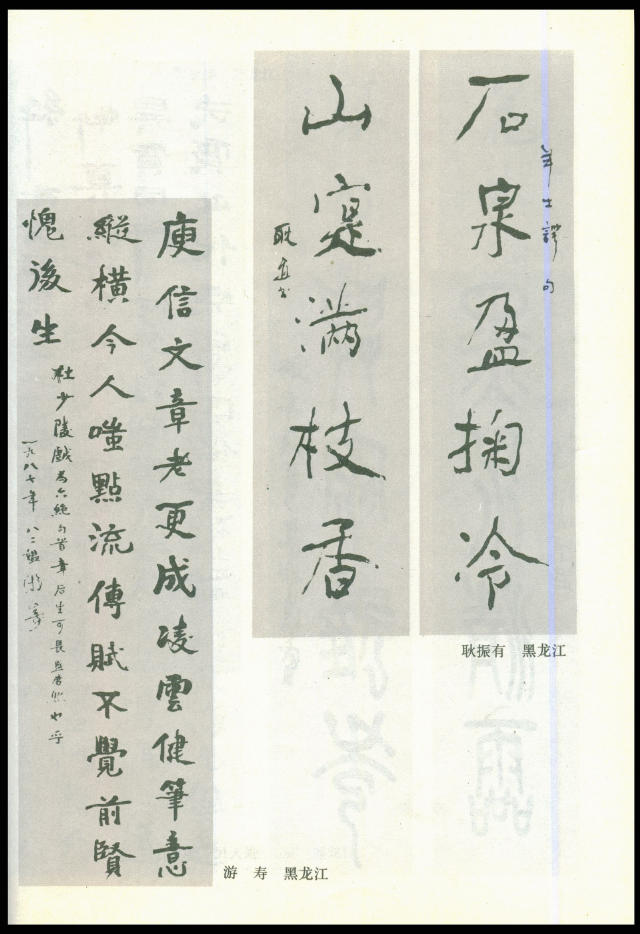 石泉盈掬冷
羊士諤句
山寔满枝香
耿直书
耿振有 黑龙江
庾信文章老更成凌雲健筆意
縱橫今人嗤點流傳賦不覺前賢
愧後生
杜少陵戲為六絕句首章后生可畏豈
一九八七年 八二叟游寿
游 寿 黑龙江